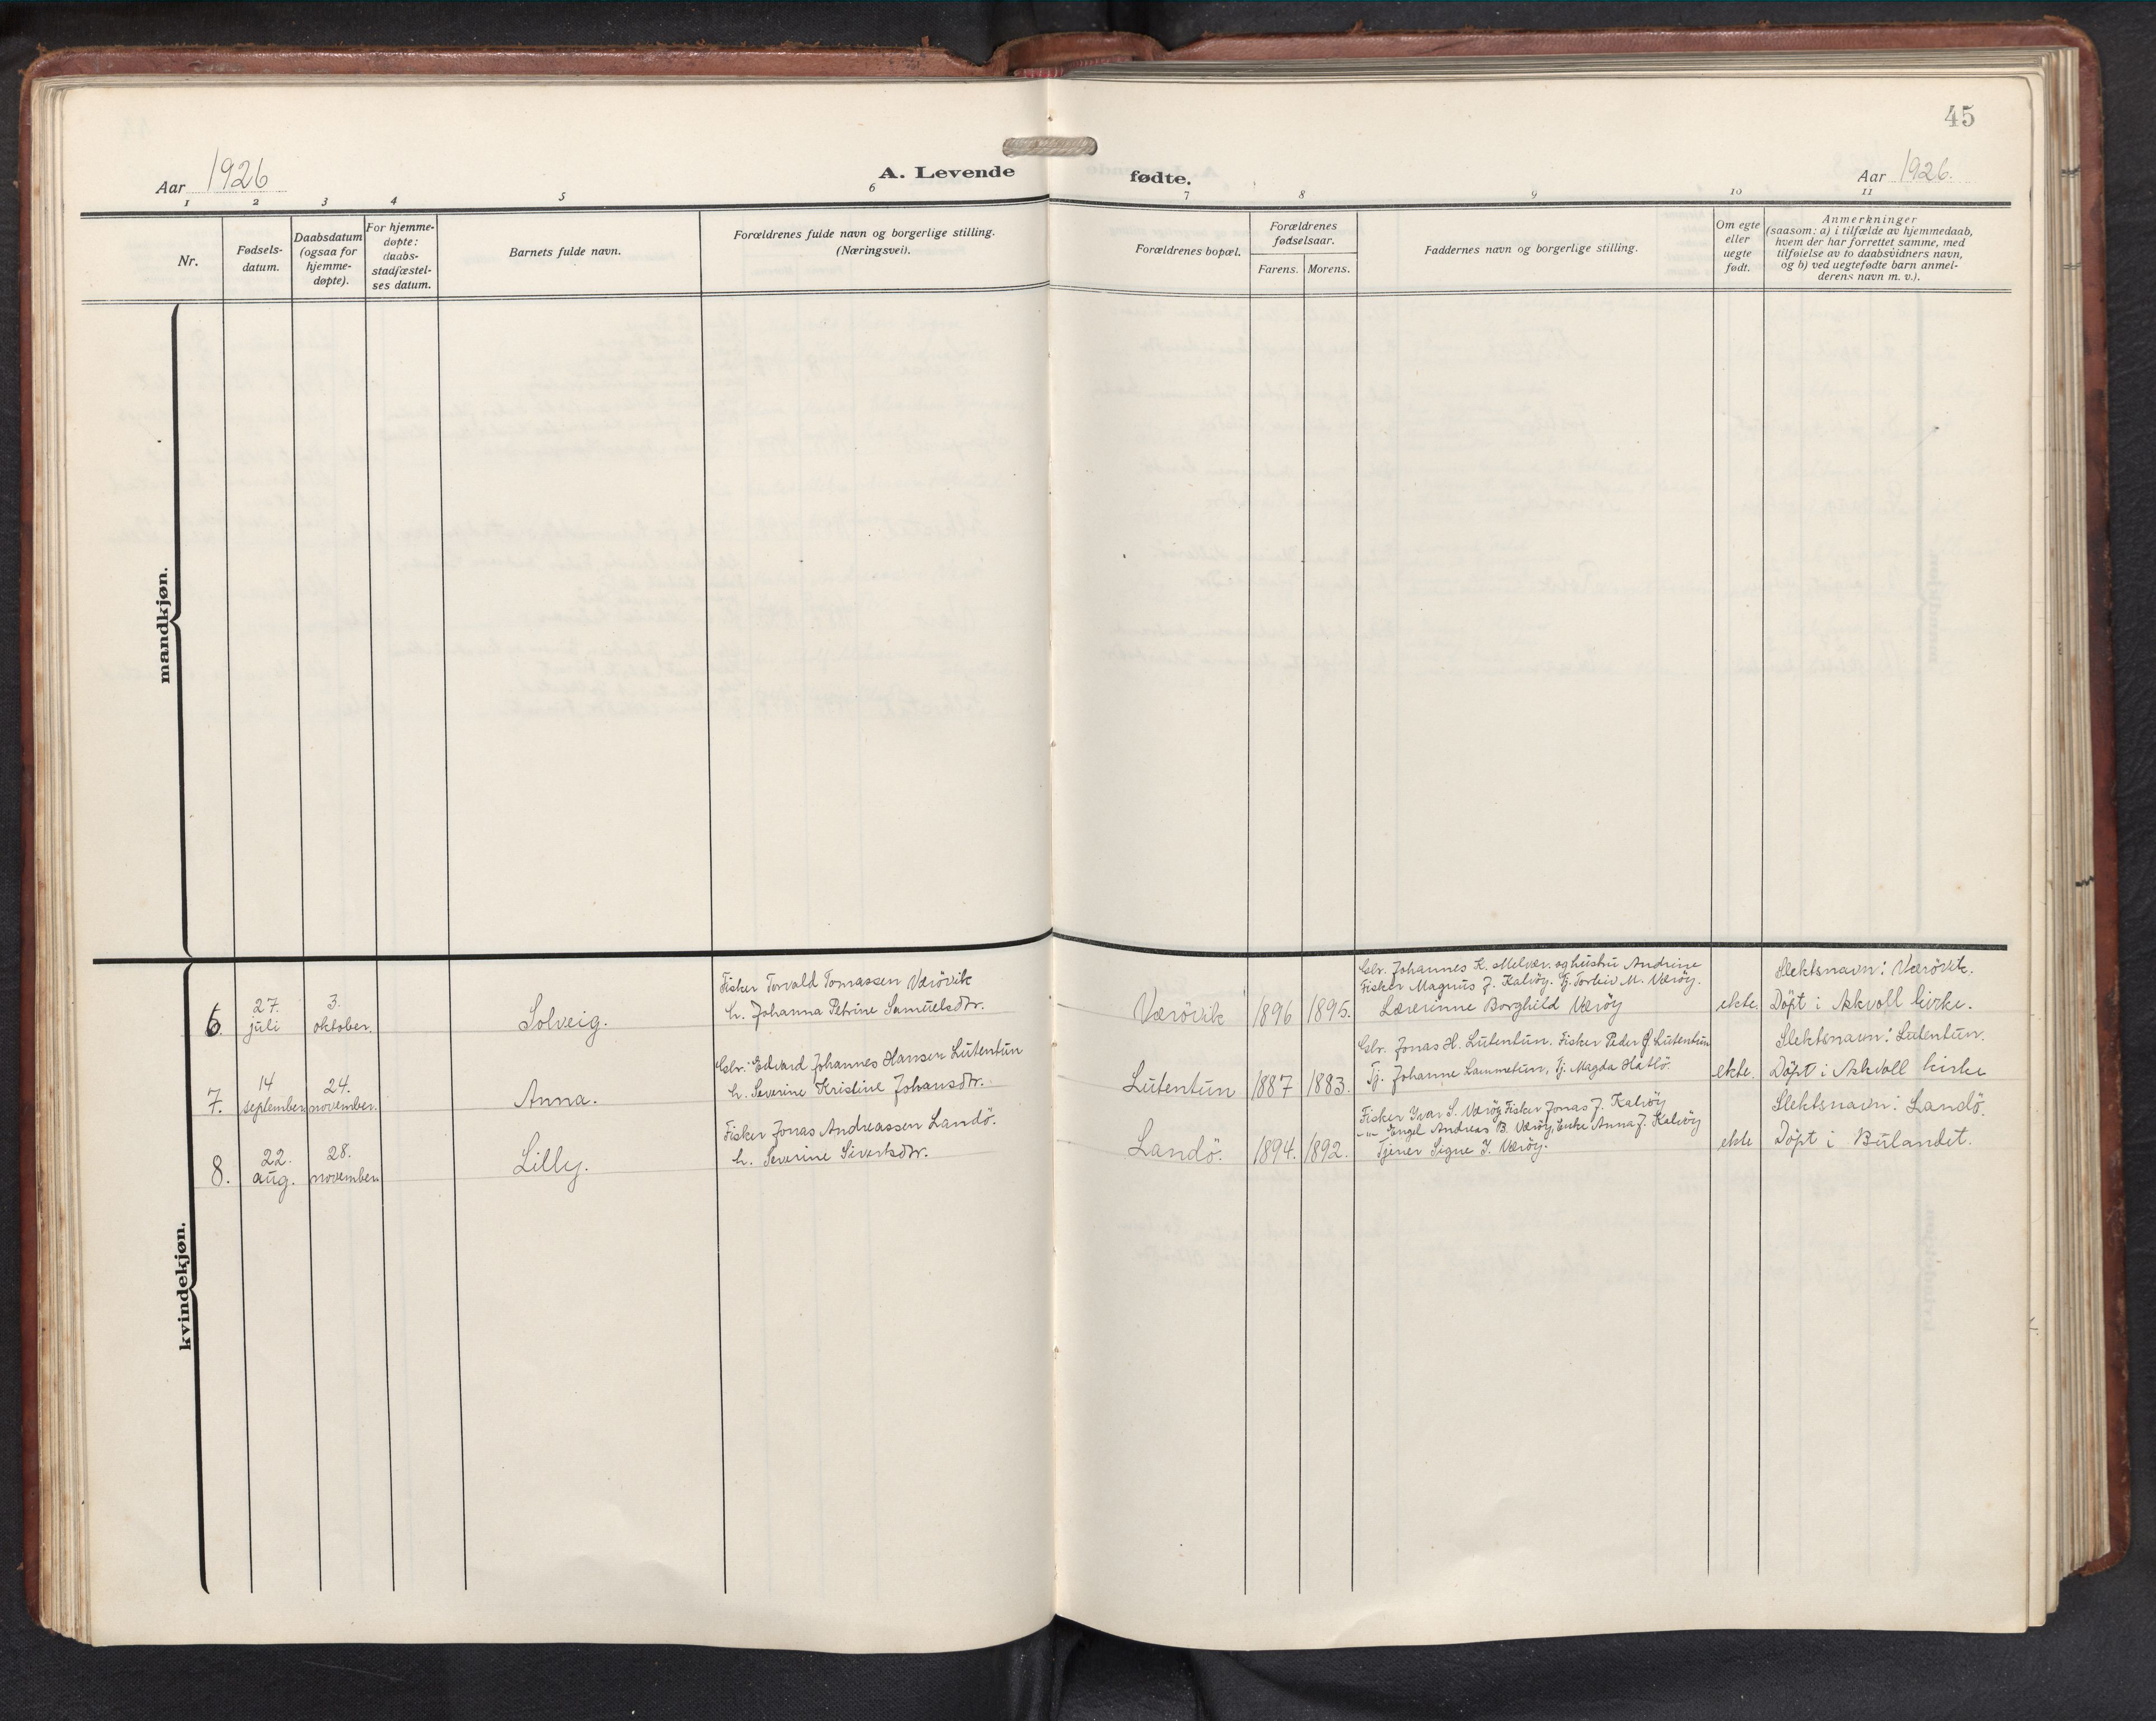 45
Aar 1926
A. Levende fødte.
Aar 1926.
1 2 3 4 5 6 7 8 9 10 11
Nr.
Fødsels-
datum.
Daabsdatum
(ogsaa for
hjemme-
døpte).
For hjemme-
døpte:
daabs-
stadfæstel-
ses datum.
Barnets fulde navn.
Forældrenes fulde navn og borgerlige stilling.
(Næringsvei).
Forældrenes bopæl.
Forældrenes
fødselsaar.
Farens. Morens.
Faddernes navn og borgerlige stilling.
Om egte
eller
uegte
født.
Anmerkninger
(saasom: a) i tilfælde av hjemmedaab,
hvem der har forrettet samme, med
tilføielse av to daabsvidners navn,
og b) ved uegtefødte barn anmel-
derens navn m. v.).
mandkjøn.
kvindekjøn.
6.
27.
juli
3.
oktober.
Solveig.
Fisker Torvald Tomassen Værövik
h. Johanna Petrine Samuelsdtr.
Værövik
1896
1895.
Gbr. Johannes K. Melvær. og hustru Andrine
Fisker Magnus J. Kalvöy. Tj. Torleiv M. Væröy.
Lærerinne Borghild Væröy
ekte.
Slektsnavn: Værövik.
Döpt i Askvoll kirke.
7.
14
september
24.
november.
Anna.
Gbr. Edvard Johannes Hansen Lutentun
h. Severine Kristine Johansdtr.
Lutentun
1887
1883.
Gbr. Jonas H. Lutentun. Fisker Peder J. Lutentun
Tj. Johanne Lammetun, Tj. Magda Hatlö.
ekte.
Slektsnavn: Lutentun.
Döpt i Askvoll kirke
8.
22.
aug.
28.
november.
Lilly.
Fisker Jonas Andreassen Landö.
h. Severine Sivertsdtr.
Landö.
1894.
1892.
Fisker Ivar S. Væröy Fisker Jonas J. Kalvöy
-"- Engel Andreas B. Væröy, Enke Anna J. Kalvöy
Tjener Signe I. Væröy.
ekte
Slektsnavn: Landö.
Döpt i Bulandet.